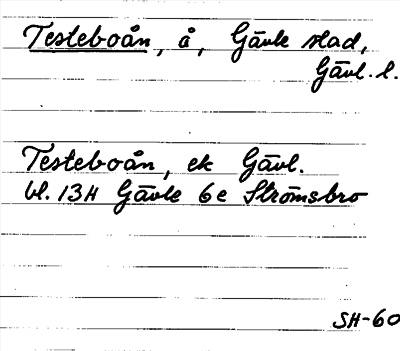 Testeboån, å, Gävle stad,
Gävl. l.
Testeboån, ek Gävl.
bl. 13H Gävle 6e Strömsbro
SH-60